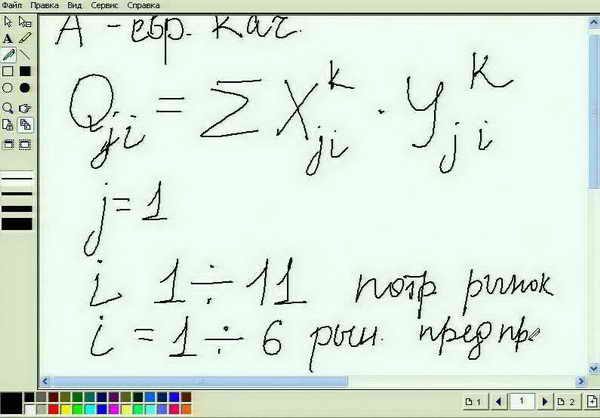 Файл Правка Вид Сервис Справка
А - евр. кач.
Q_ji = Σ X_ji^k · Y_ji^k
j = 1
i 1 ÷ 11 потр рынок
i = 1 ÷ 6 рын. предпр
1 1 2